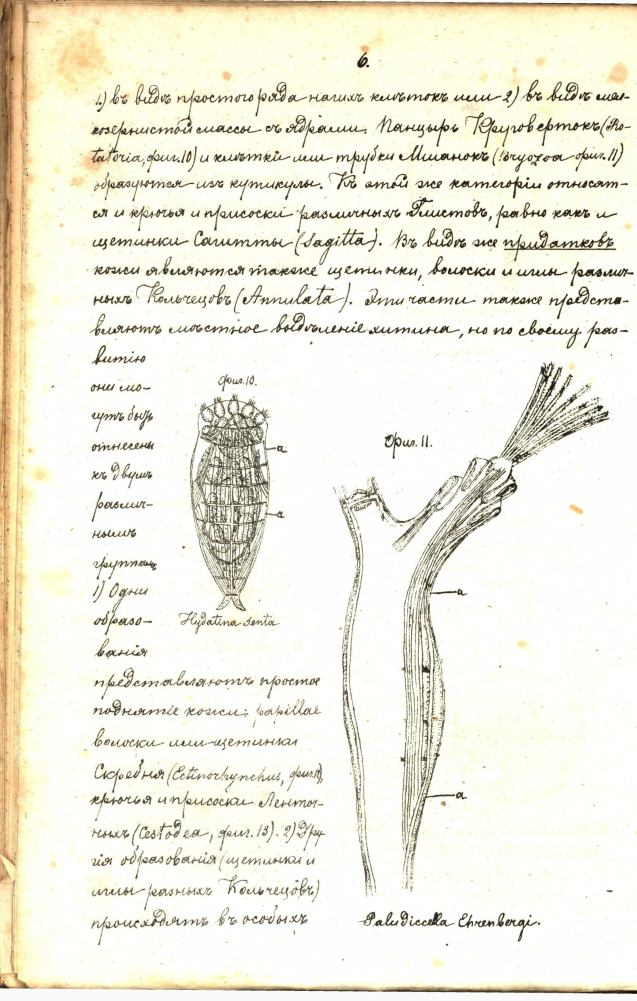 6.
1.) въ видѣ простого ряда нагихъ клѣтокъ или 2) въ видѣ мел-
козернистой массы съ ядрами. Панцырь Круговертокъ (Ro-
tatoria, фиг. 10) и клѣтки или трубки Мшанокъ (Bryozoa фиг. 11)
образуются изъ кутикулы. Къ этой же категоріи относят-
ся и крючья и присоски различныхъ Глистовъ, равно какъ и
щетинки Сагитты (Sagitta). Въ видѣ же придатковъ
кожи являются также щетинки, волоски и иглы различ-
ныхъ Кольчецовъ (Annulata). Эти части также предста-
вляютъ мѣстное выдѣленіе хитина, но по своему раз-
витію
они мо-
гутъ быть
отнесены
къ двумъ
различ-
нымъ
группамъ
1) Одни
образо-
ванія
представляютъ простое
поднятіе кожи: papillae
волоски или щетинки
Скребня (Echinorhynchus, фиг. 12),
крючья и присоски Ленточ-
ныхъ (Cestodea, фиг. 13). 2) Дру-
гія образованія (щетинки и
иглы разныхъ Кольчецовъ)
происходятъ въ особыхъ
фиг. 10.
a
a
Hydatina senta
Фиг. 11.
a
a
Paludicella Ehrenbergi.